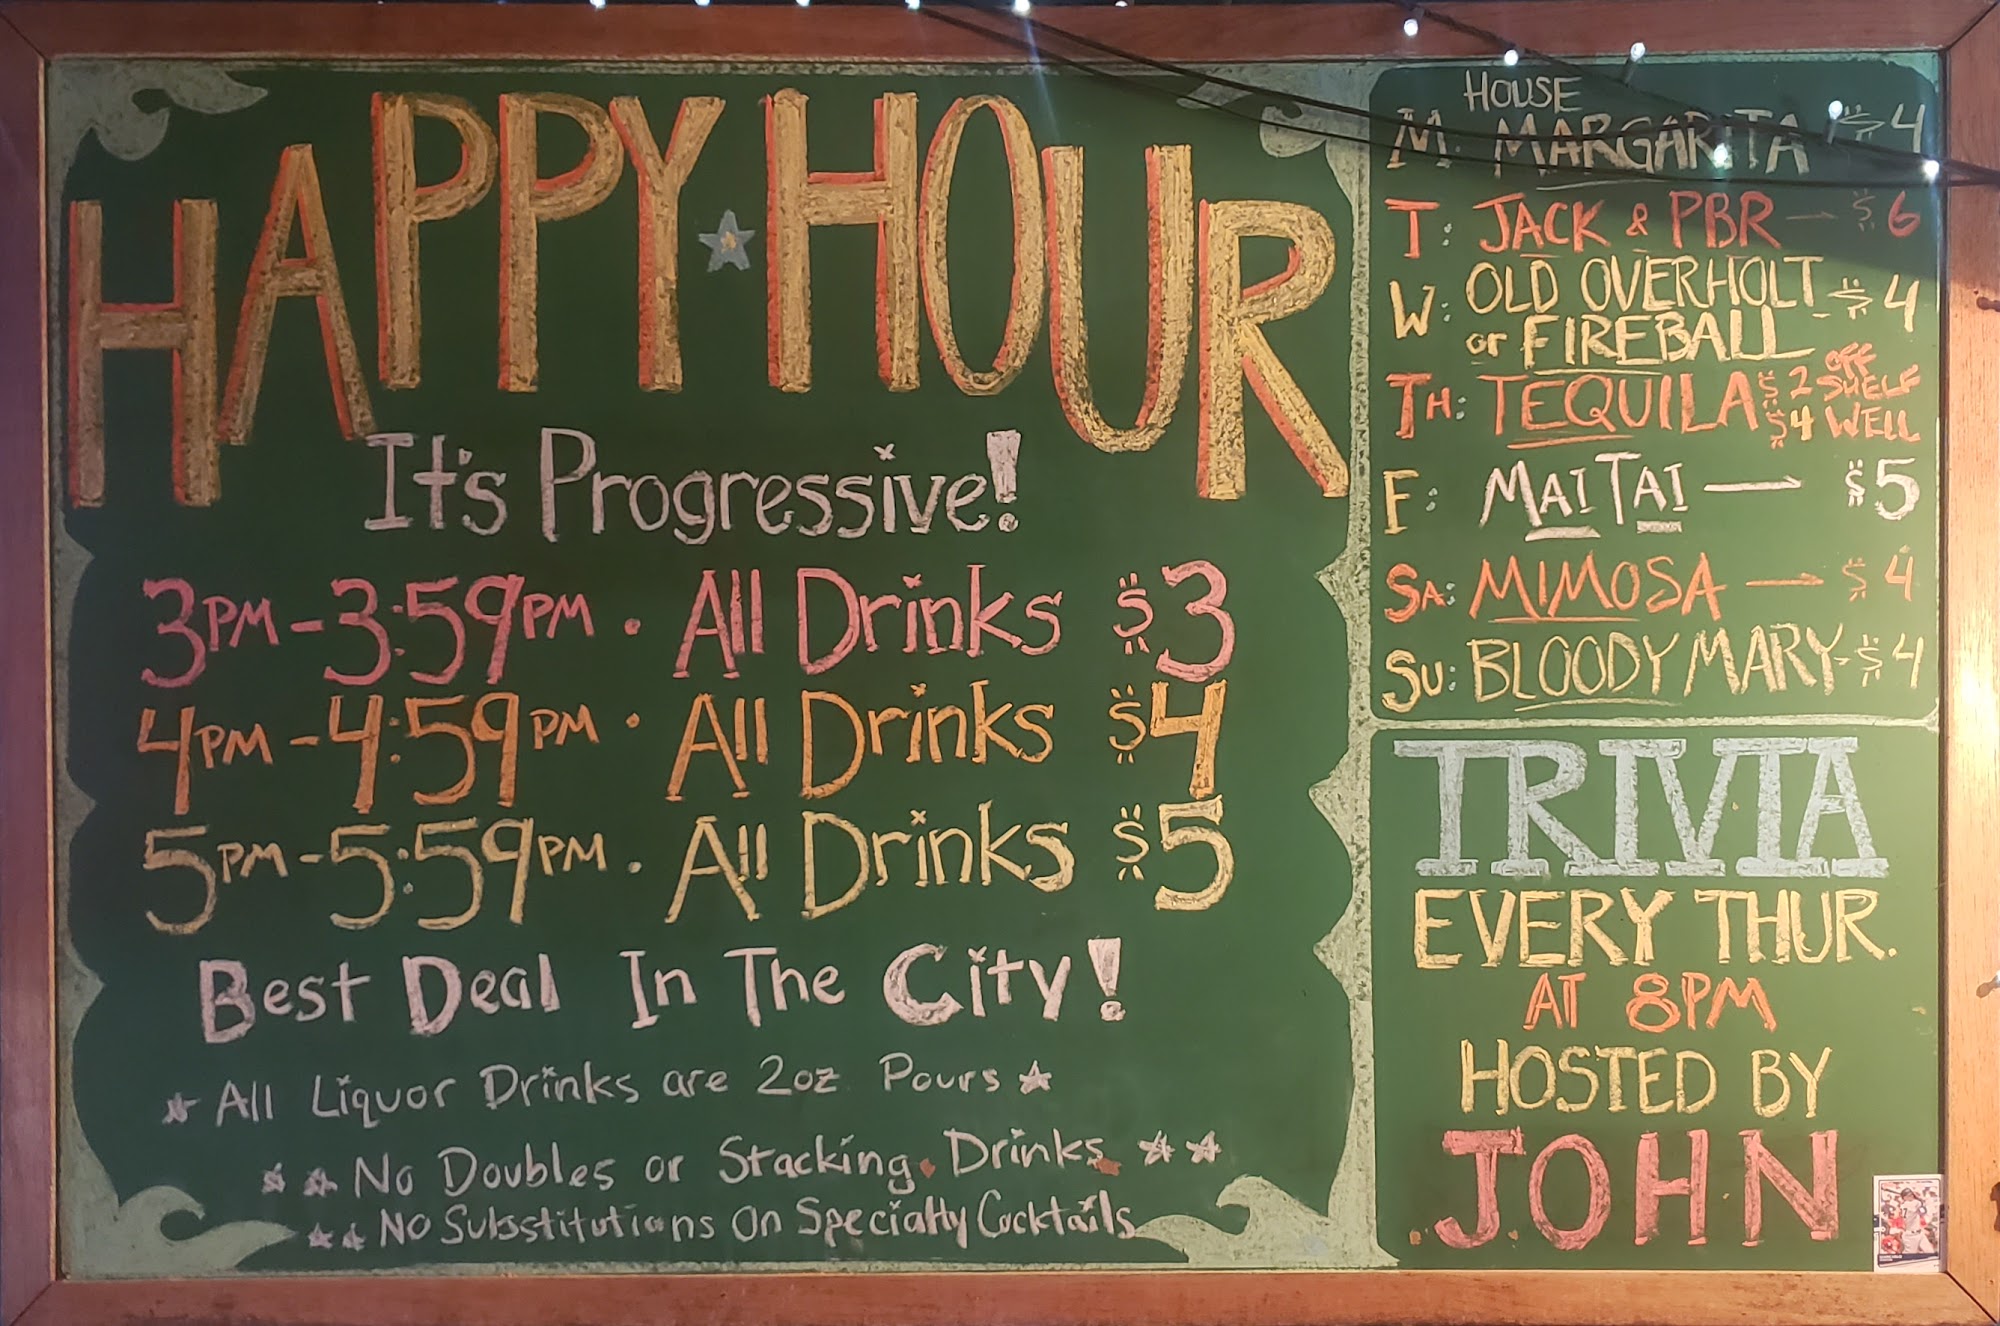 HAPPY HOUR
It's Progressive!
3PM-3:59PM · All Drinks $3
4PM-4:59PM · All Drinks $4
5PM-5:59PM · All Drinks $5
Best Deal In The City!
All Liquor Drinks are 2oz Pours
No Doubles or Stacking Drinks
No Substitutions On Specialty Cocktails
HOUSE
M: MARGARITA $4
T: JACK & PBR - $6
W: OLD OVERHOLT
or FIREBALL - $4
TH: TEQUILA $2 OFF SHELF
$4 WELL
F: MAI TAI — $5
SA: MIMOSA — $4
SU: BLOODY MARY - $4
TRIVIA
EVERY THUR.
AT 8PM
HOSTED BY
JOHN